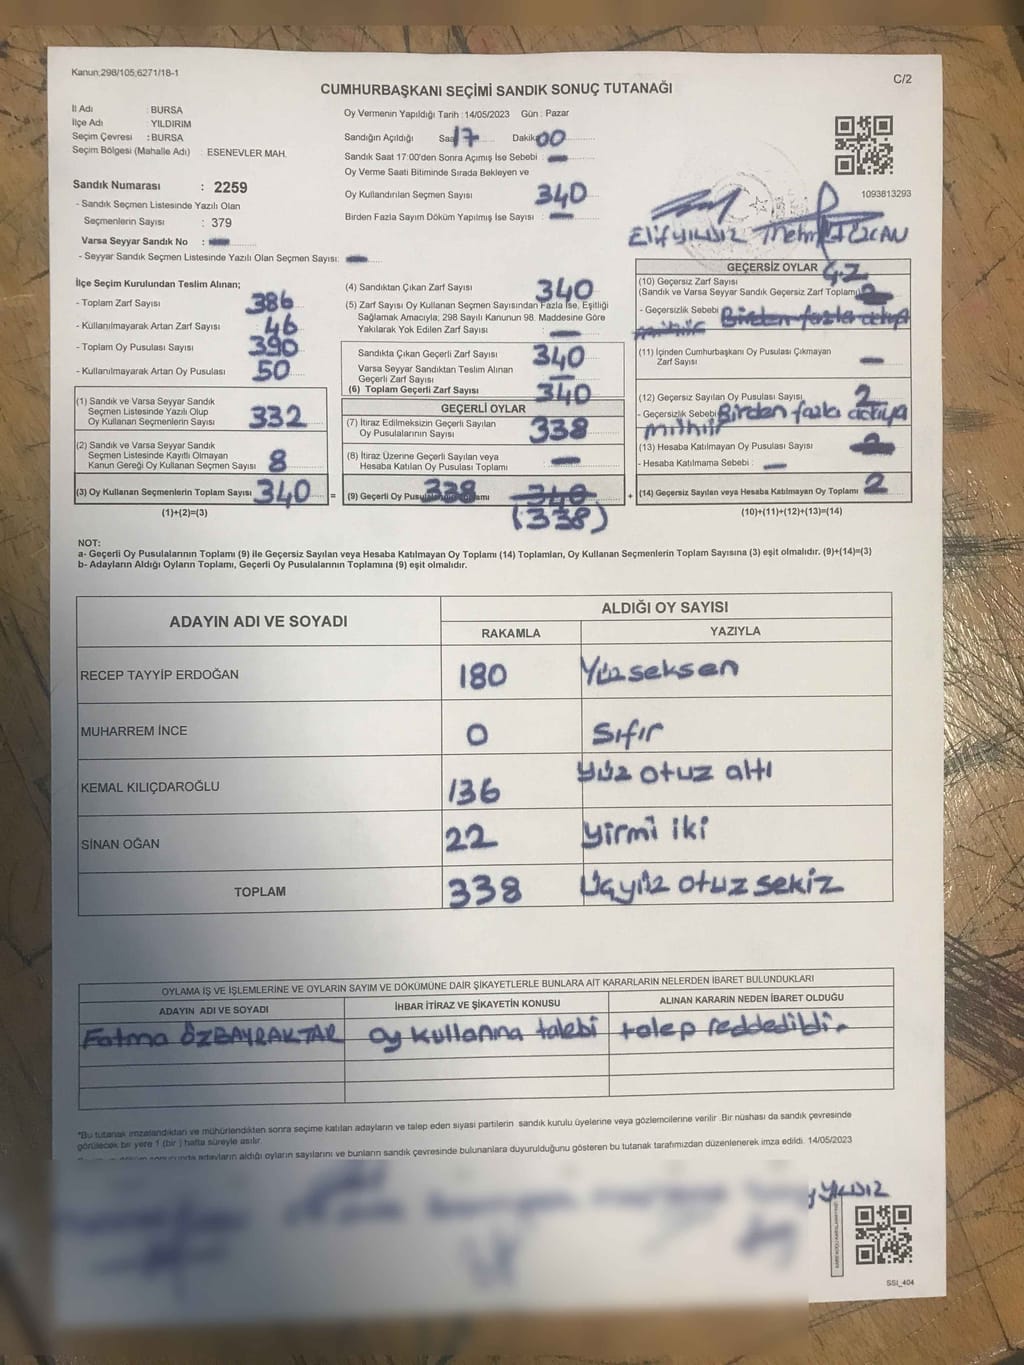 Kanun;298/105;6271/18-1
C/2
CUMHURBAŞKANI SEÇİMİ SANDIK SONUÇ TUTANAĞI
İl Adı : BURSA
İlçe Adı : YILDIRIM
Seçim Çevresi : BURSA
Seçim Bölgesi (Mahalle Adı) : ESENEVLER MAH.
Sandık Numarası : 2259
- Sandık Seçmen Listesinde Yazılı Olan
Seçmenlerin Sayısı : 379
Varsa Seyyar Sandık No :
- Seyyar Sandık Seçmen Listesinde Yazılı Olan Seçmen Sayısı:
Oy Vermenin Yapıldığı Tarih :14/05/2023 Gün : Pazar
Sandığın Açıldığı Saat 17 Dakika 00
Sandık Saat 17:00'den Sonra Açımış İse Sebebi :
Oy Verme Saati Bitiminde Sırada Bekleyen ve
Oy Kullandırılan Seçmen Sayısı 340
Birden Fazla Sayım Döküm Yapılmış İse Sayısı :
1093813293
Elif YILDIZ
İlçe Seçim Kurulundan Teslim Alınan;
- Toplam Zarf Sayısı 386
- Kullanılmayarak Artan Zarf Sayısı 46
- Toplam Oy Pusulası Sayısı 390
- Kullanılmayarak Artan Oy Pusulası 50
(1) Sandık ve Varsa Seyyar Sandık
Seçmen Listesinde Yazılı Olup
Oy Kullanan Seçmenlerin Sayısı 332
(2) Sandık ve Varsa Seyyar Sandık
Seçmen Listesinde Kayıtlı Olmayan
Kanun Gereği Oy Kullanan Seçmen Sayısı 8
(3) Oy Kullanan Seçmenlerin Toplam Sayısı 340
(1)+(2)=(3)
=
(4) Sandıktan Çıkan Zarf Sayısı 340
(5) Zarf Sayısı Oy Kullanan Seçmen Sayısından Fazla İse, Eşitliği
Sağlamak Amacıyla, 298 Sayılı Kanunun 98. Maddesine Göre
Yakılarak Yok Edilen Zarf Sayısı
Sandıkta Çıkan Geçerli Zarf Sayısı 340
Varsa Seyyar Sandıktan Teslim Alınan
Geçerli Zarf Sayısı
(6) Toplam Geçerli Zarf Sayısı 340
GEÇERLİ OYLAR
(7) İtiraz Edilmeksizin Geçerli Sayılan
Oy Pusulalarının Sayısı 338
(8) İtiraz Üzerine Geçerli Sayılan veya
Hesaba Katılan Oy Pusulası Toplamı
(9) Geçerli Oy Pusulalarının Toplamı 338 340
(338)
+
GEÇERSİZ OYLAR
(10) Geçersiz Zarf Sayısı
(Sandık ve Varsa Seyyar Sandık Geçersiz Zarf Toplamı)
- Geçersizlik Sebebi Birden fazla
(11) İçinden Cumhurbaşkanı Oy Pusulası Çıkmayan
Zarf Sayısı
(12) Geçersiz Sayılan Oy Pusulası Sayısı 2
- Geçersizlik Sebebi Birden fazla
mühür
(13) Hesaba Katılmayan Oy Pusulası Sayısı
- Hesaba Katılmama Sebebi :
(14) Geçersiz Sayılan veya Hesaba Katılmayan Oy Toplamı 2
(10)+(11)+(12)+(13)=(14)
NOT:
a- Geçerli Oy Pusulalarının Toplamı (9) ile Geçersiz Sayılan veya Hesaba Katılmayan Oy Toplamı (14) Toplamları, Oy Kullanan Seçmenlerin Toplam Sayısına (3) eşit olmalıdır. (9)+(14)=(3)
b- Adayların Aldığı Oyların Toplamı, Geçerli Oy Pusulalarının Toplamına (9) eşit olmalıdır.
ADAYIN ADI VE SOYADI
ALDIĞI OY SAYISI
RAKAMLA YAZIYLA
RECEP TAYYİP ERDOĞAN 180 Yüzseksen
MUHARREM İNCE 0 Sıfır
KEMAL KILIÇDAROĞLU 136 Yüz otuz altı
SİNAN OĞAN 22 Yirmi iki
TOPLAM 338 Üçyüz otuz sekiz
OYLAMA İŞ VE İŞLEMLERİNE VE OYLARIN SAYIM VE DÖKÜMÜNE DAİR ŞİKAYETLERLE BUNLARA AİT KARARLARIN NELERDEN İBARET BULUNDUKLARI
ADAYIN ADI VE SOYADI İHBAR İTİRAZ VE ŞİKAYETİN KONUSU ALINAN KARARIN NEDEN İBARET OLDUĞU
Fatma ÖZBAYRAKTAR oy kullanma talebi talep reddedildi.
*Bu tutanak imzalandıktan ve mühürlendikten sonra seçime katılan adayların ve talep eden siyasi partilerin sandık kurulu üyelerine veya gözlemcilerine verilir .Bir nüshası da sandık çevresinde
görülecek bir yere 1 (bir ) hafta süreyle asılır.
adayların aldığı oyların sayılarını ve bunların sandık çevresinde bulunanlara duyurulduğunu gösteren bu tutanak tarafımızdan düzenlenerek imza edildi. 14/05/2023
YILDIZ
SSI_404